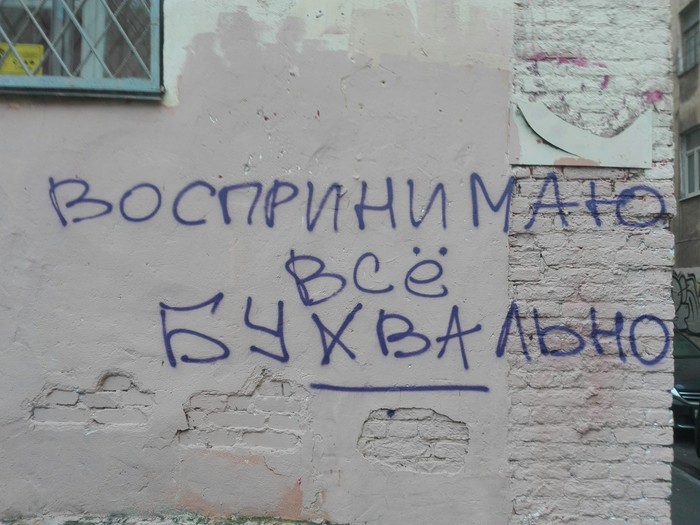 ВОСПРИНИМАЮ
ВСЁ
БУХВАЛЬНО